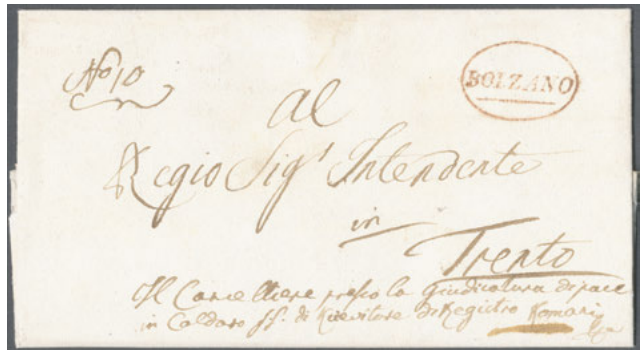 No 10
BOLZANO
al
Regio Sigr Intendente
in
Trento
Il Cancelliere presso la Giudicatura di pace
in Caldaro ff. di Ricevitore di Registro